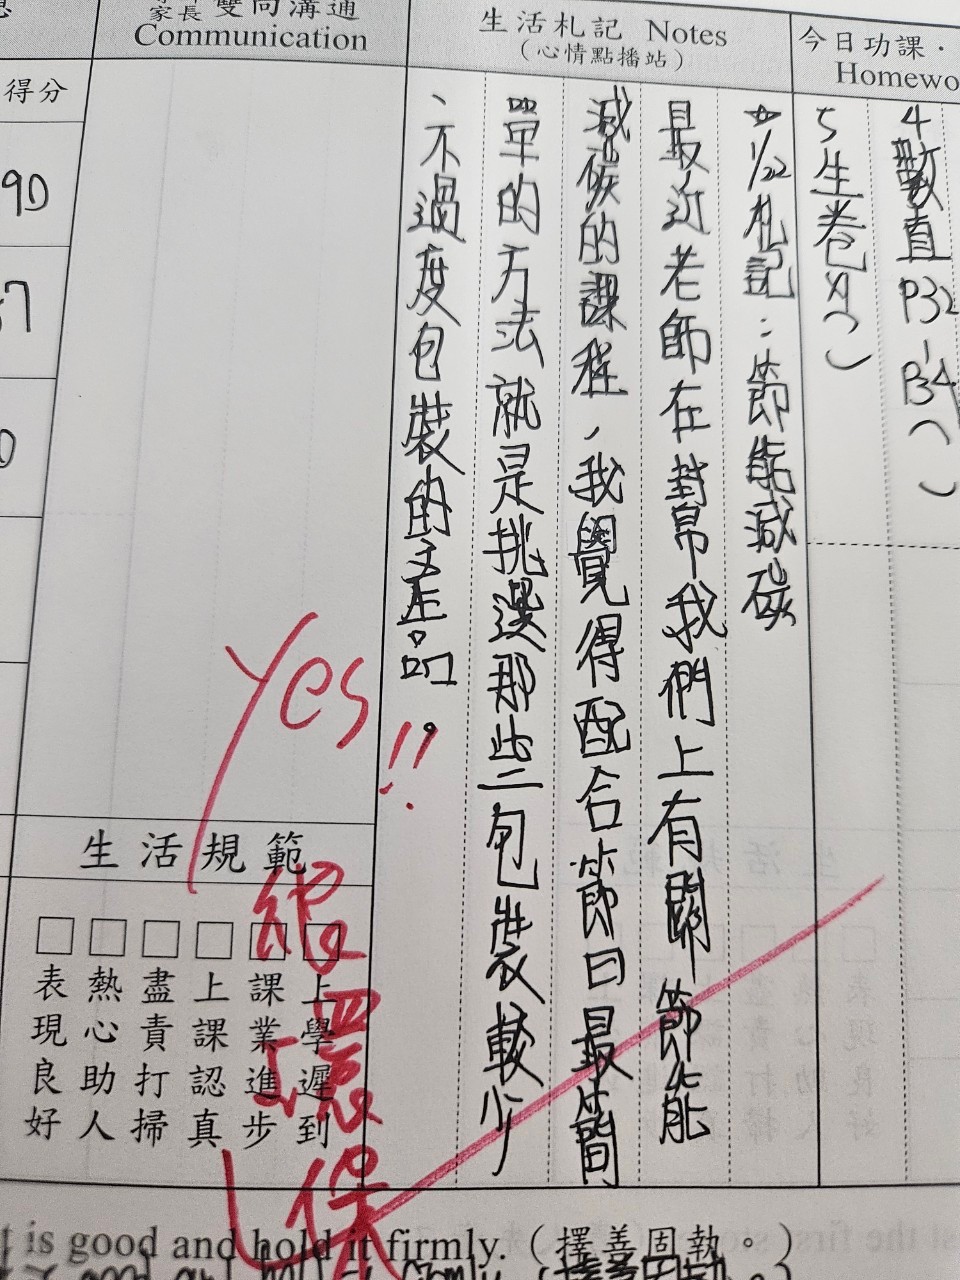 家長雙向溝通
Communication
生活札記 Notes
(心情點播站)
今日功課・
Homewo
得分
90
4數直P32-P34( )
5生卷外( )
☆1/22札記:節能減碳
最近老師在幫我們上有關節能
減碳的課程,我覺得配合節日最簡
單的方法就是挑選那些包裝較少
、不過度包裝的產品。
Yes!!
很環保
生活規範
上學遲到
課業進步
上課認真
盡責打掃
熱心助人
表現良好
t is good and hold it firmly. (擇善固執。)